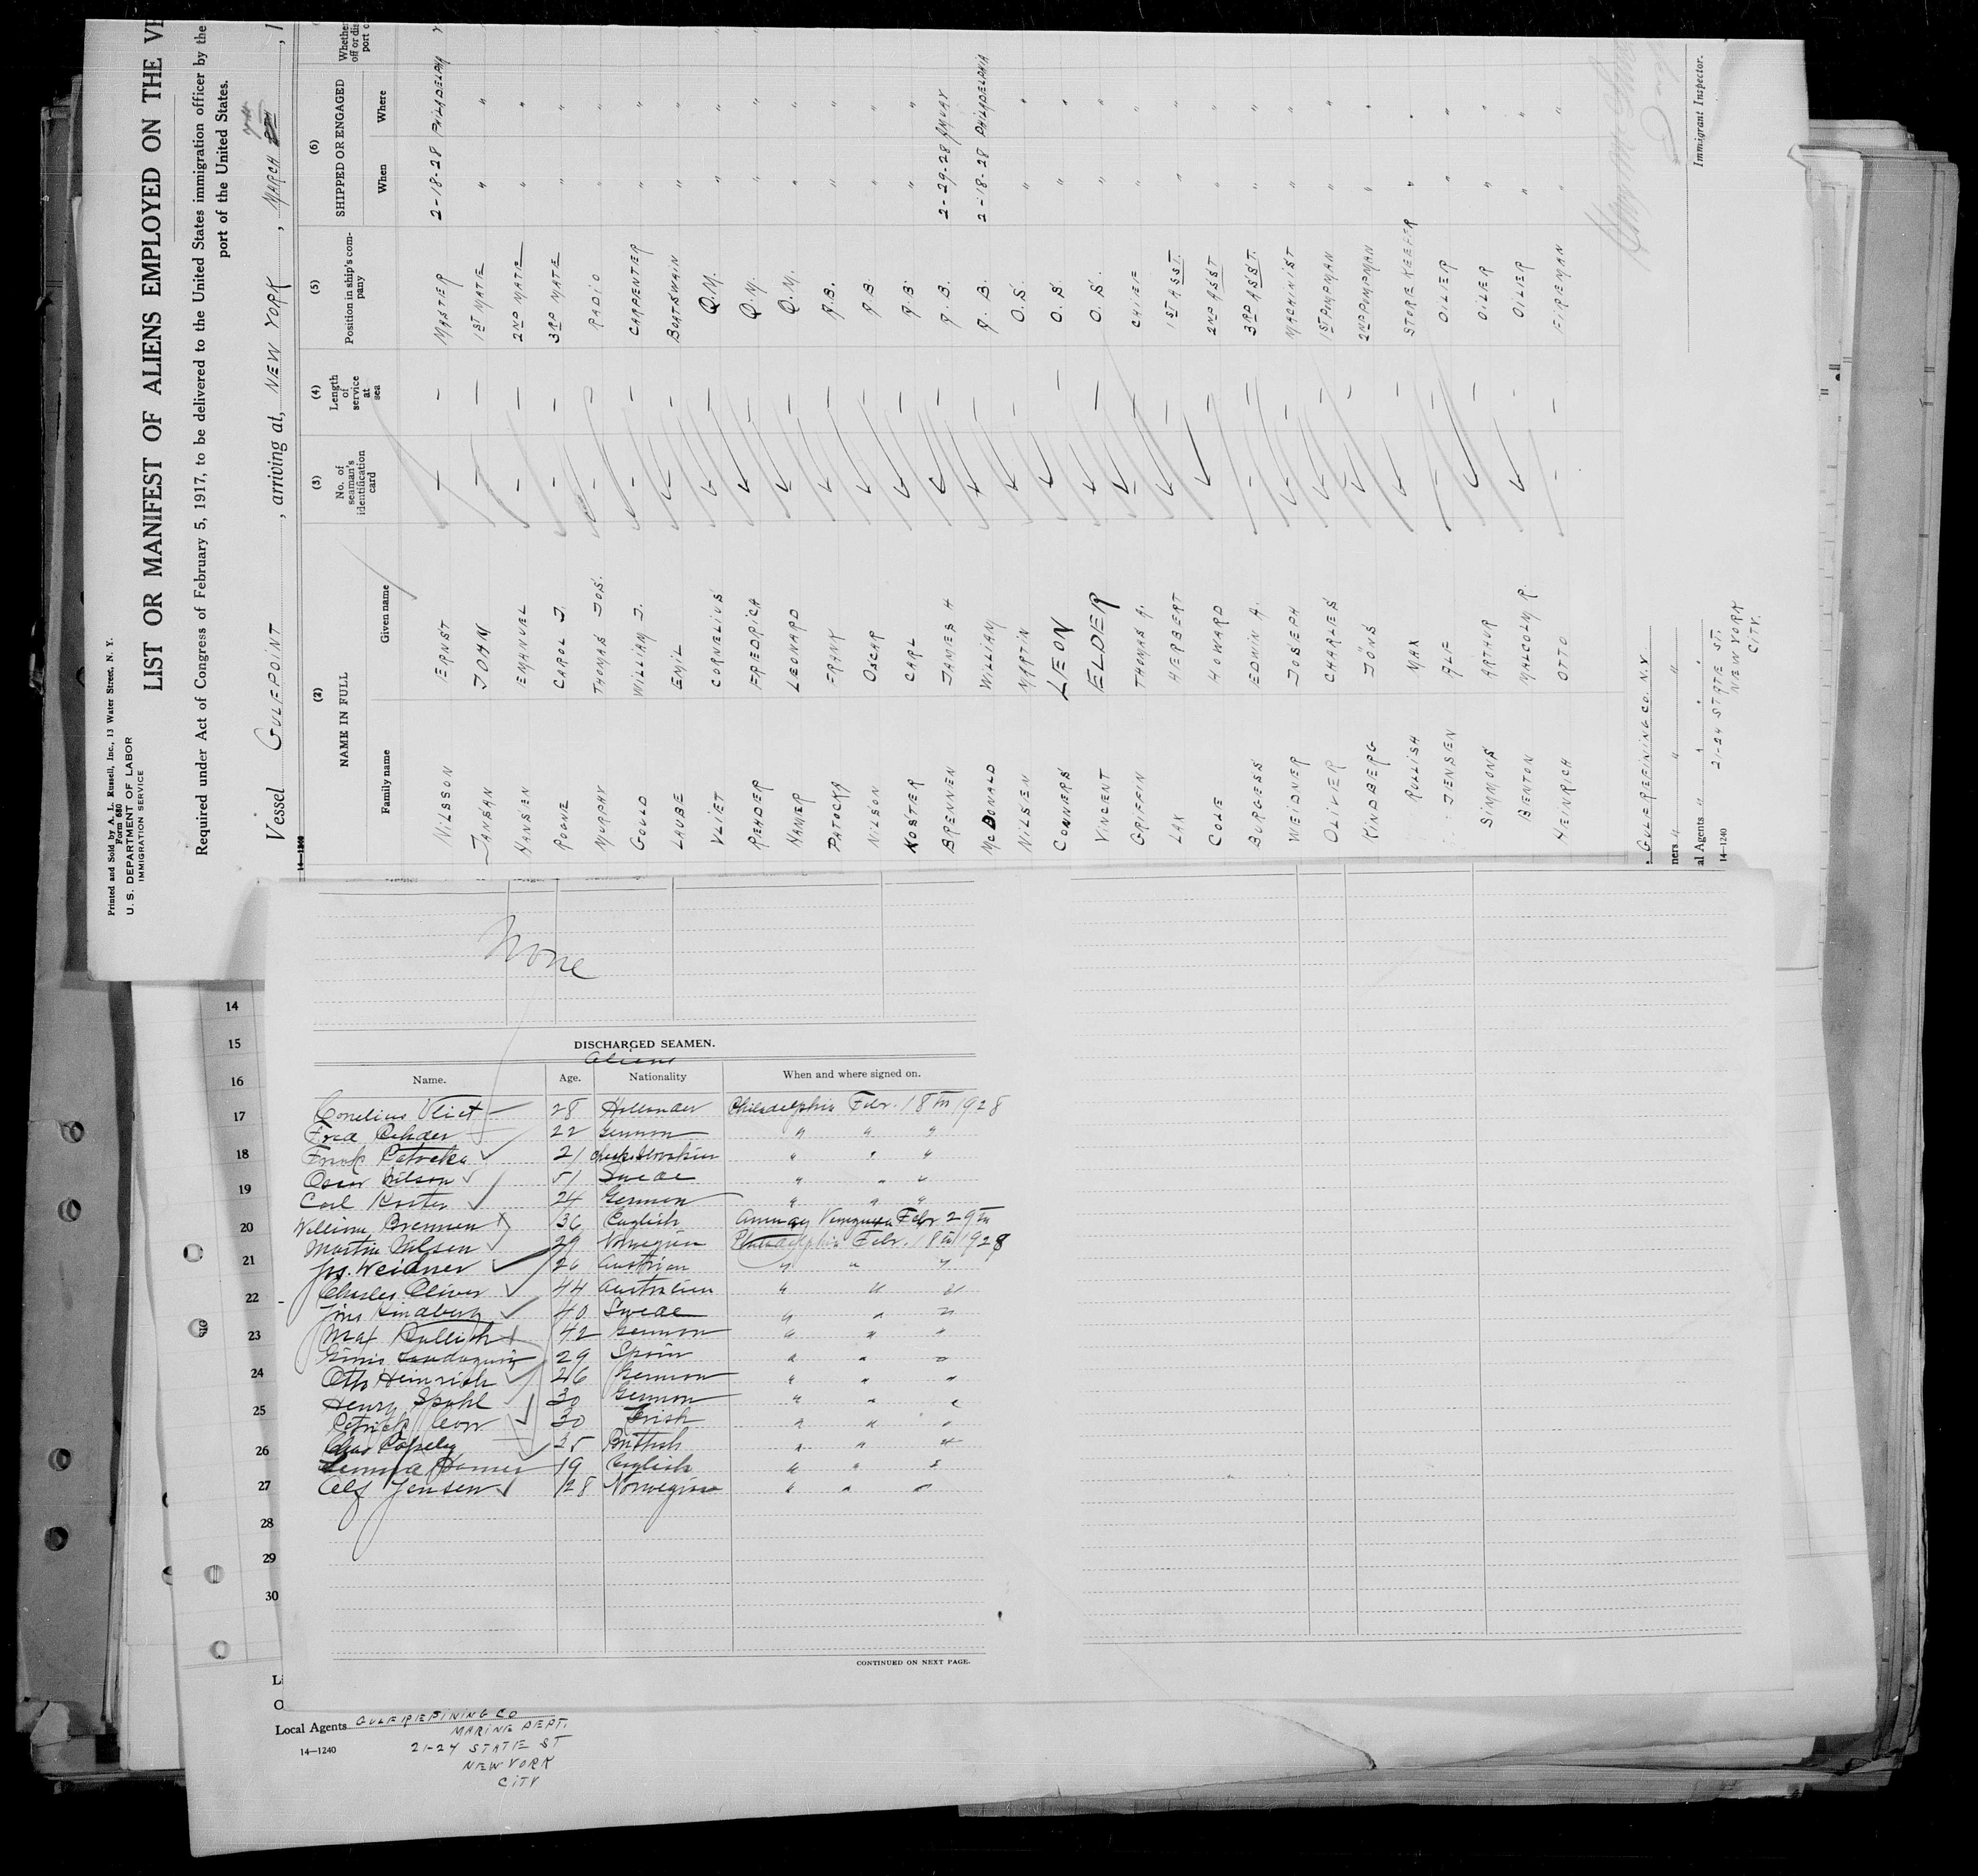 Printed and Sold by A. L. Russell, Inc., 13 Water Street, N. Y.
Form 680
U. S. DEPARTMENT OF LABOR
IMMIGRATION SERVICE
LIST OR MANIFEST OF ALIENS EMPLOYED ON THE VE
Required under Act of Congress of February 5, 1917, to be delivered to the United States immigration officer by the
port of the United States.
Vessel GULFPOINT , arriving at, NEW YORK , MARCH , 1
14—1240
(2) (3) (4) (5) (6)
NAME IN FULL No. of seaman's identification card Length of service at sea Position in ship's company SHIPPED OR ENGAGED Whether
off or dis
port o
Family name Given name When Where
NILSSON ERNST — — MASTER 2-18-28 PHILADELPHIA
JANSAN JOHN — — 1ST MATE " "
HANSEN EMANUEL — — 2ND MATE " "
ROGNE CAROL J. — — 3RD MATE " "
MURPHY THOMAS JOS. — — RADIO " "
GOULD WILLIAM J. — — CARPENTER " "
LAUBE EMIL — BOATSWAIN " "
VLIET CORNELIUS — Q.M. " "
REHDER FREDRICH — Q.M. " "
HAMER LEONARD — Q.M. " "
PATOCKA FRANK — A.B. " "
NILSON OSCAR — A.B. " "
KOSTER CARL — A.B. " "
BRENNEN JAMES H — A.B. 2-29-28 AMUAY
McDONALD WILLIAM — A.B. 2-18-28 PHILADELPHIA
NILSEN MARTIN — O.S. " "
CONNERS LEON — O.S. " "
VINCENT ELDER — O.S. " "
GRIFFIN THOMAS A. — CHIEF " "
LAX HERBERT — 1ST ASST. " "
COLE HOWARD — 2ND ASST " "
BURGESS EDWIN A. — — 3RD ASST. " "
WEIDNER JOSEPH — MACHINIST " "
OLIVER CHARLES — 1ST PUMPMAN " "
KINDBERG JÖNS — 2ND PUMPMAN " "
RULLISH MAX — STOREKEEPER " "
JENSEN ALF — — OILER " "
SIMMONS ARTHUR — OILER " "
BENTON MALCOLM R. — OILER " "
HEINRICH OTTO — — FIREMAN " "
GULF REFINING CO. N.Y
ners " " "
al Agents " " " "
14—1240 21-24 STATE ST.
NEW YORK
CITY.
Immigrant Inspector.
None
DISCHARGED SEAMEN.
Aliens
Name. Age. Nationality When and where signed on.
Cornelius Vliet 28 Hollander Philadelphia Febr. 18th 1928
Fred Rehder 22 German " " "
Frank Patocka 21 " " "
Oscar Nilson 51 Swede " " "
Carl Koster 24 German " " "
William Brennen 36 English Amuay Febr 29th
Martin Nilsen 29 Norwegian Philadelphia Febr. 18th 1928
Jos. Weidner 26 Austrian " " "
Charles Oliver 44 Australian " " "
Jöns Kindberg 40 Swede " " "
Max Rullish 42 German " " "
29 Spain " " "
Otto Heinrich 26 German " " "
Henry Spohl 30 German " " "
Patrick 30 Irish " " "
Chas 35 British " " "
Hamer 19 English " " "
Alf Jensen 28 Norwegian " " "
CONTINUED ON NEXT PAGE.
14
15
16
17
18
19
20
21
22
23
24
25
26
27
28
29
30
Local Agents GULF REFINING CO
MARINE DEPT.
14—1240 21-24 STATE ST
NEW YORK
CITY